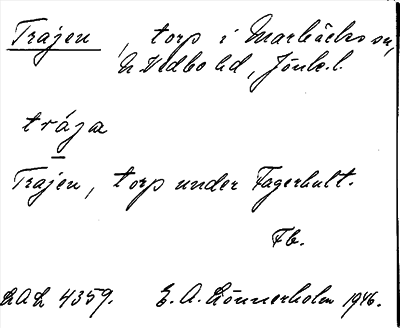 Trajen, torp i Marbäcks sn,
N Vedbo hd, Jönk. l.
trája
Trajen, torp under Fagerhult.
Fb.
LAL 4359. E. A. Lönnerholm 1946.